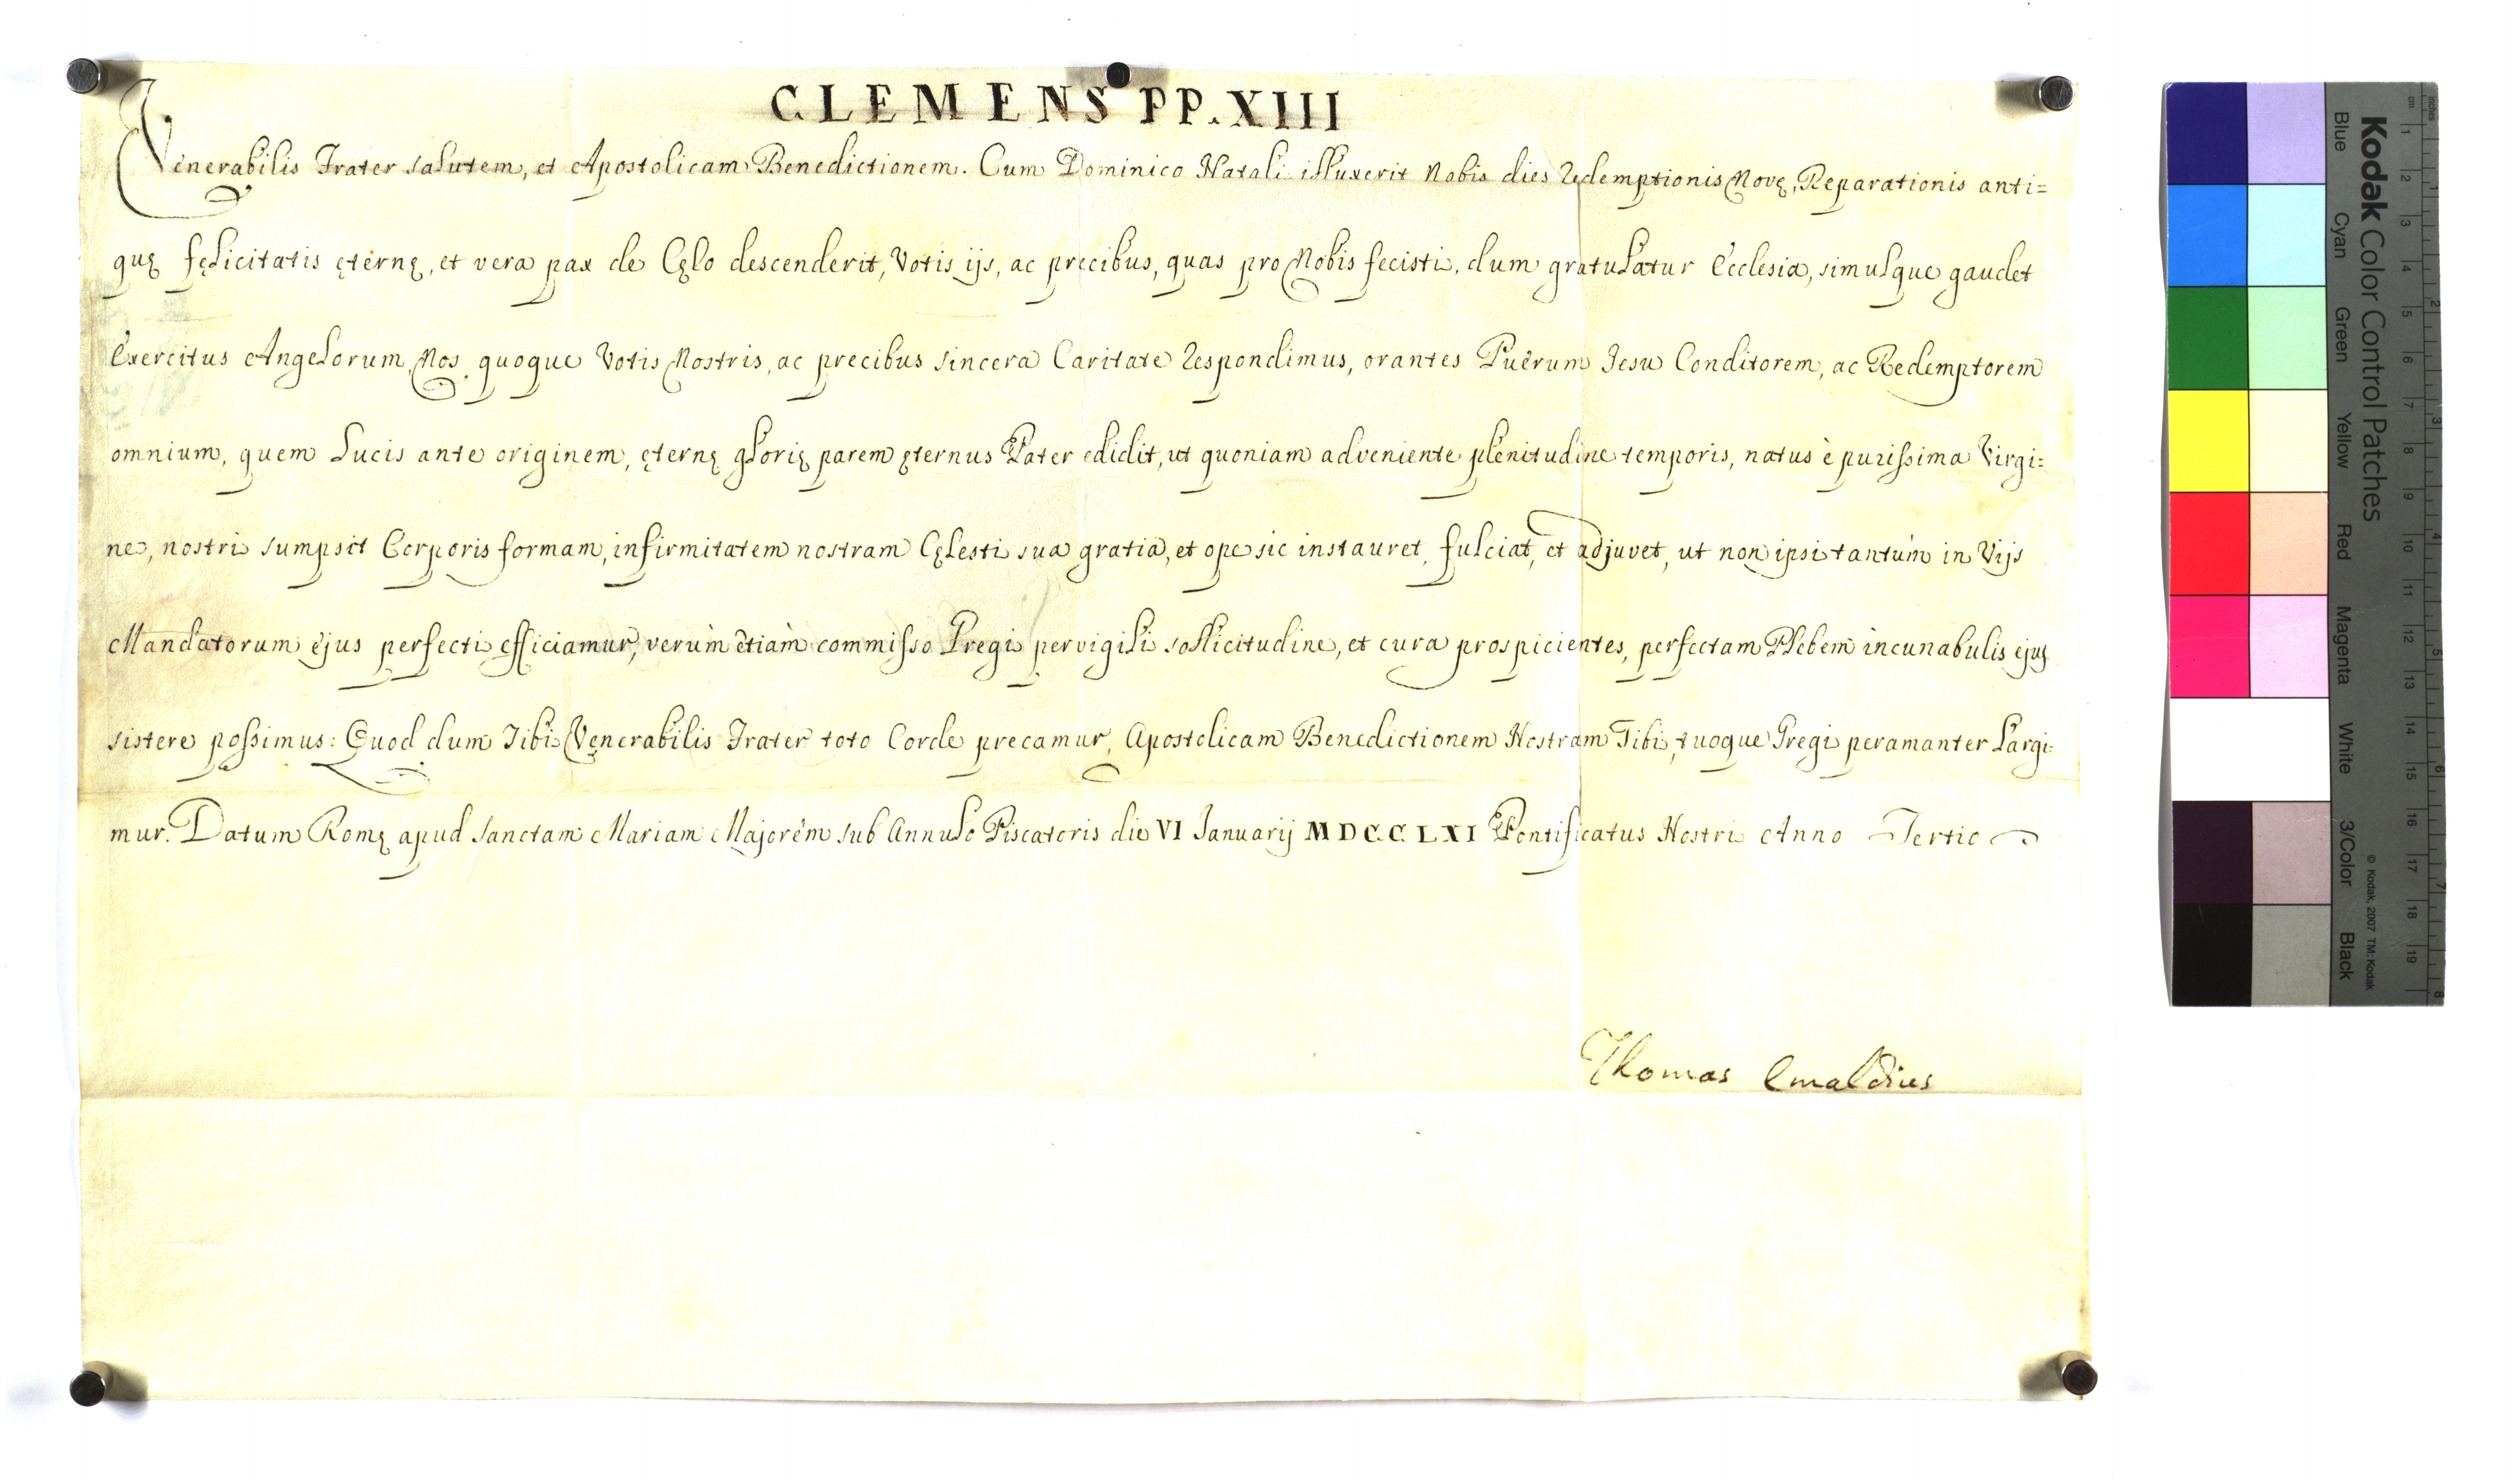 CLEMENS PP. XIII
Venerabilis Frater salutem, et Apostolicam Benedictionem. Cum Dominico Natali illuxerit Nobis dies Redemptionis Novę, Reparationis anti=
quę fęlicitatis ęternę, et vera pax de Cęlo descenderit, Votis ijs, ac precibus, quas pro Nobis fecisti, dum gratulatur Ecclesia, simulque gaudet
Exercitus Angelorum, Nos quoque Votis Nostris, ac precibus sincera Caritate Respondimus, orantes Puerum Jesu Conditorem, ac Redemptorem
omnium, quem Lucis ante originem, ęternę glorię parem ęternus Pater edidit, ut quoniam adveniente plenitudine temporis, natus è purissima Virgi=
ne, nostri sumpsit Corporis formam, infirmitatem nostram Cęlesti sua gratia, et ope sic instauret, fulciat, et adjuvet, ut non ipsi tantùm in Vijs
Mandatorum ejus perfecti efficiamur, verùm etiàm commisso Gregi pervigili sollicitudine, et cura prospicientes, perfectam Plebem incunabulis ejus
sistere possimus: Quod dum Tibi Venerabilis Frater toto Corde precamur, Apostolicam Benedictionem Nostram Tibi, tuoque Gregi peramanter Largi=
mur. Datum Romę apud Sanctam Mariam Majorem sub Annulo Piscatoris die VI Januarij MDCCLXI Pontificatus Nostri Anno Tertio
Thomas Emaldius
Kodak Color Control Patches
Blue Cyan Green Yellow Red Magenta White 3/Color Black
© Kodak, 2007 TM: Kodak
cm 1 2 3 4 5 6 7 8 9 10 11 12 13 14 15 16 17 18 19
Inches 1 2 3 4 5 6 7 8